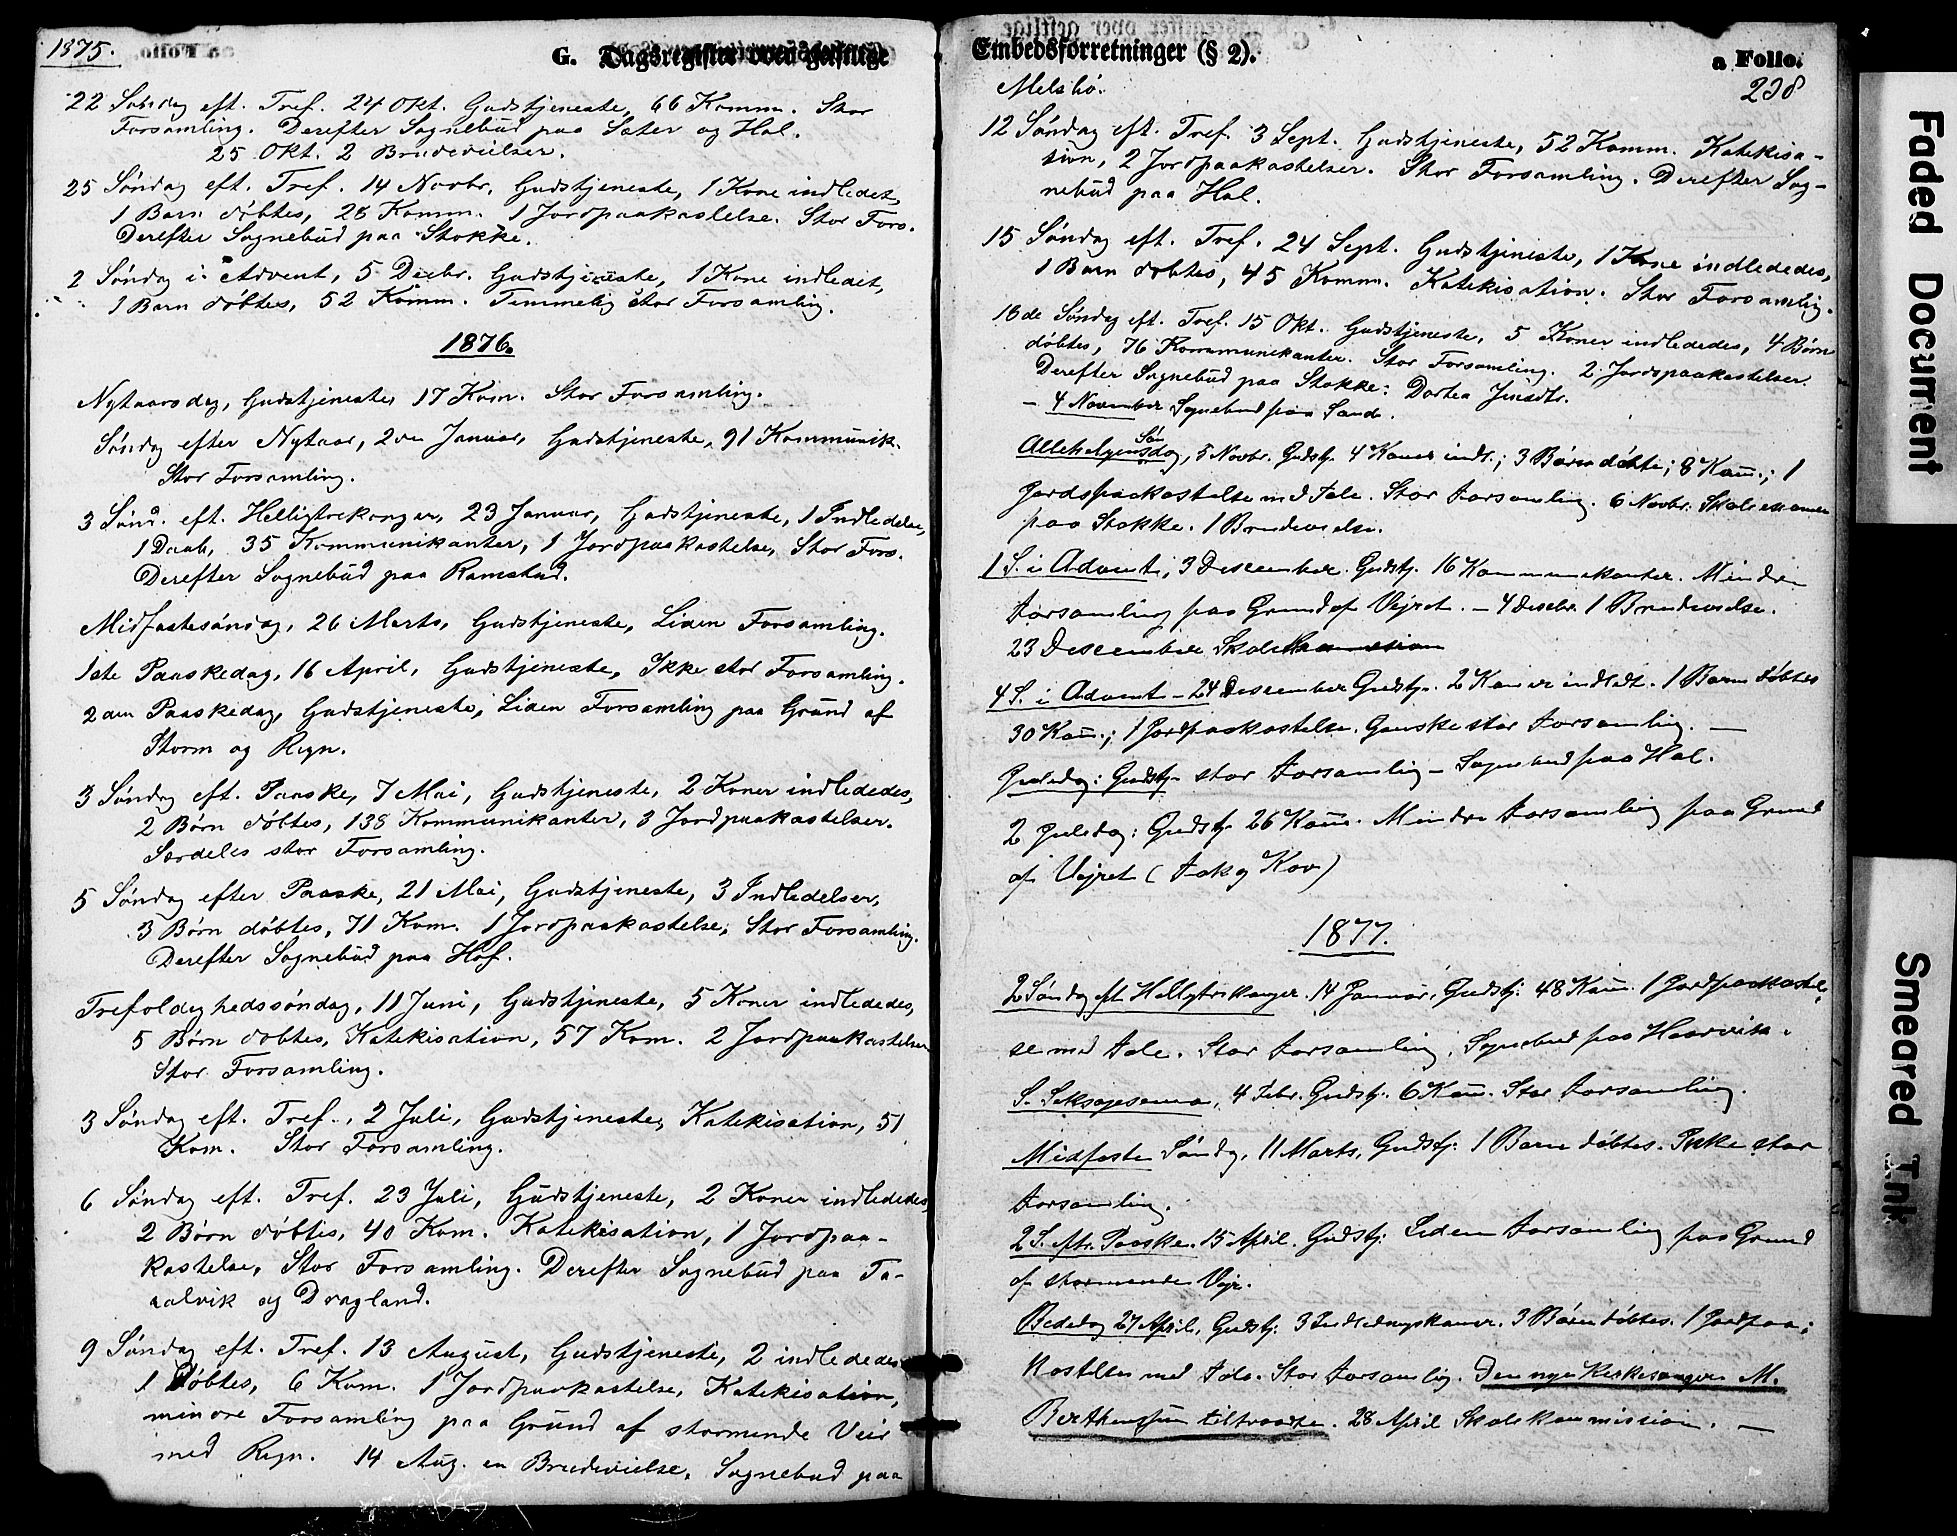 1875.
G. Dagsregister over geistlige
22 Søndag eft. Tref. 24 Okt. Gudstjeneste, 66 Komm. Stor
Forsamling. Derefter Sognebud paa Sæter og Hol.
25 Okt. 2 Brudevielser.
25 Søndag eft. Tref. 14 Novbr. Gudstjeneste, 1 Kone indledet,
1 Barn døbtes, 28 Komm. 1 Jordpaakastelse. Stor Fors.
Derefter Sognebud paa Stokke.
2 Søndag i Advent, 5 Decbr. Gudstjeneste, 1 Kone indledet,
1 Barn døbtes, 52 Komm. Temmelig stor Forsamling.
1876.
Nytaarsdag, Gudstjeneste, 17 Kom. Stor Forsamling.
Søndag efter Nytaar, 2den Januar, Gudstjeneste, 91 Kommunik.
Stor Forsamling.
3 Sønd. eft. Helligtrekonger, 23 Januar, Gudstjeneste, 1 Indledelse,
1 Daab, 35 Kommunikanter, 1 Jordpaakastelse, Stor Fors.
Derefter Sognebud paa Ramstad.
Midfastesøndag, 26 Marts, Gudstjeneste, Liden Forsamling.
1ste Paaskedag, 16 April, Gudstjeneste, Ikke stor Forsamling.
2den Paaskedag, Gudstjeneste, Liden Forsamling paa Grund af
Storm og Regn.
3 Søndag eft. Paaske, 7 Mai, Gudstjeneste, 2 Koner indlededes,
2 Børn døbtes, 138 Kommunikanter, 3 Jordpaakastelser.
Særdeles stor Forsamling.
5 Søndag efter Paaske, 21 Mai, Gudstjeneste, 3 Indledelser,
3 Børn døbtes, 71 Kom. 1 Jordpaakastelse, Stor Forsamling.
Derefter Sognebud paa Hof.
Trefoldighedssøndag, 11 Juni, Gudstjeneste, 5 Koner indlededes,
5 Børn døbtes, Katekisation, 57 Kom. 2 Jordpaakastelser
Stor Forsamling.
3 Søndag eft. Tref., 2 Juli, Gudstjeneste, Katekisation, 51
Kom. Stor Forsamling.
6 Søndag eft. Tref. 23 Juli, Gudstjeneste, 2 Koner indlededes,
2 Børn døbtes, 40 Kom. Katekisation, 1 Jordpaa-
kastelse, Stor Forsamling. Derefter Sognebud paa Ta-
aalvik og Dragland.
9 Søndag eft. Tref. 13 August, Gudstjeneste, 2 indlededes
1 Døbtes, 6 Kom. 1 Jordpaakastelse, Katekisation,
mindre Forsamling paa Grund af stormende Veir
med Regn. 14 Aug. en Brudevielse, Sognebud paa
Embedsforretninger (§ 2).
a Folio.
238
Melsbö.
12 Søndag eft. Tref. 3 Sept. Gudstjeneste, 52 Komm. Katekisa-
tion, 2 Jordpaakastelser. Stor Forsamling. Derefter Sog-
nebud paa Hol.
15 Søndag eft. Tref. 24 Sept. Gudstjeneste, 1 Kone indlededes,
1 Barn døbtes, 45 Komm. Katekisation. Stor Forsamling.
18de Søndag eft. Tref. 15 Okt. Gudstjeneste, 5 Koner indlededes, 4 Børn
døbtes, 76 Kommunikanter. Stor Forsamling. 2 Jordpaakastelser.
Derefter Sognebud paa Stokke: Dortea Jensdtr.
- 4 November Sognebud paa Sand.
Allehelgenssøndag, 5 Novbr. Gudstj. 4 Koner indl.; 3 Børn døbte; 8 Kom.; 1
Jordspaakastelse med Tale. Stor Forsamling. 6 Novbr. Skoleexamen
paa Stokke. 1 Brudevielse.
1 S. i Advent, 3 Desember. Gudstj. 16 Kommunikanter. Mindre
Forsamling paa Grund af Vejret. - 4 Desebr. 1 Brudevielse.
23 Desember Skolekommission
4 S. i Advent - 24 Desember Gudstj. 2 Koner indledt. 1 Barn døbtes
30 Kom.; 1 Jordpaakastelse. Ganske stor Forsamling. -
Juledag: Gudstj. stor Forsamling - Sognebud paa Hol.
2 Juledag: Gudstj. 26 Kom. Mindre Forsamling paa Grund
af Vejret (Fok og Kov)
1877.
2 Søndag eft. Helligtrekonger 14 Januar, Gudstj. 48 Kom. 1 Jordpaakastel-
se med Tale. Stor Forsamling. Sognebud paa Haarvik.
S. Seksagesima, 4 Febr. Gudstj. 6 Kom. Stor Forsamling.
Midfaste Søndag, 11 Marts, Gudstj. 1 Barn døbtes. Ikke stor
Forsamling.
2 S. eftr. Paaske. 15 April. Gudstj. Liden Forsamling paa Grund
af stormende Vejr.
Bededag 27 April, Gudstj. 3 Indledningskoner. 3 Børn døbtes. 1 Jordpaa-
kastelse med Tale. Stor Forsamling. Den nye Kirkesanger M.
Berthensen tiltraadte. 28 April Skolekommission. -
Faded Document
Smeared Ink